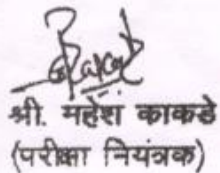 श्री. महेश काकडे
(परीक्षा नियंत्रक)